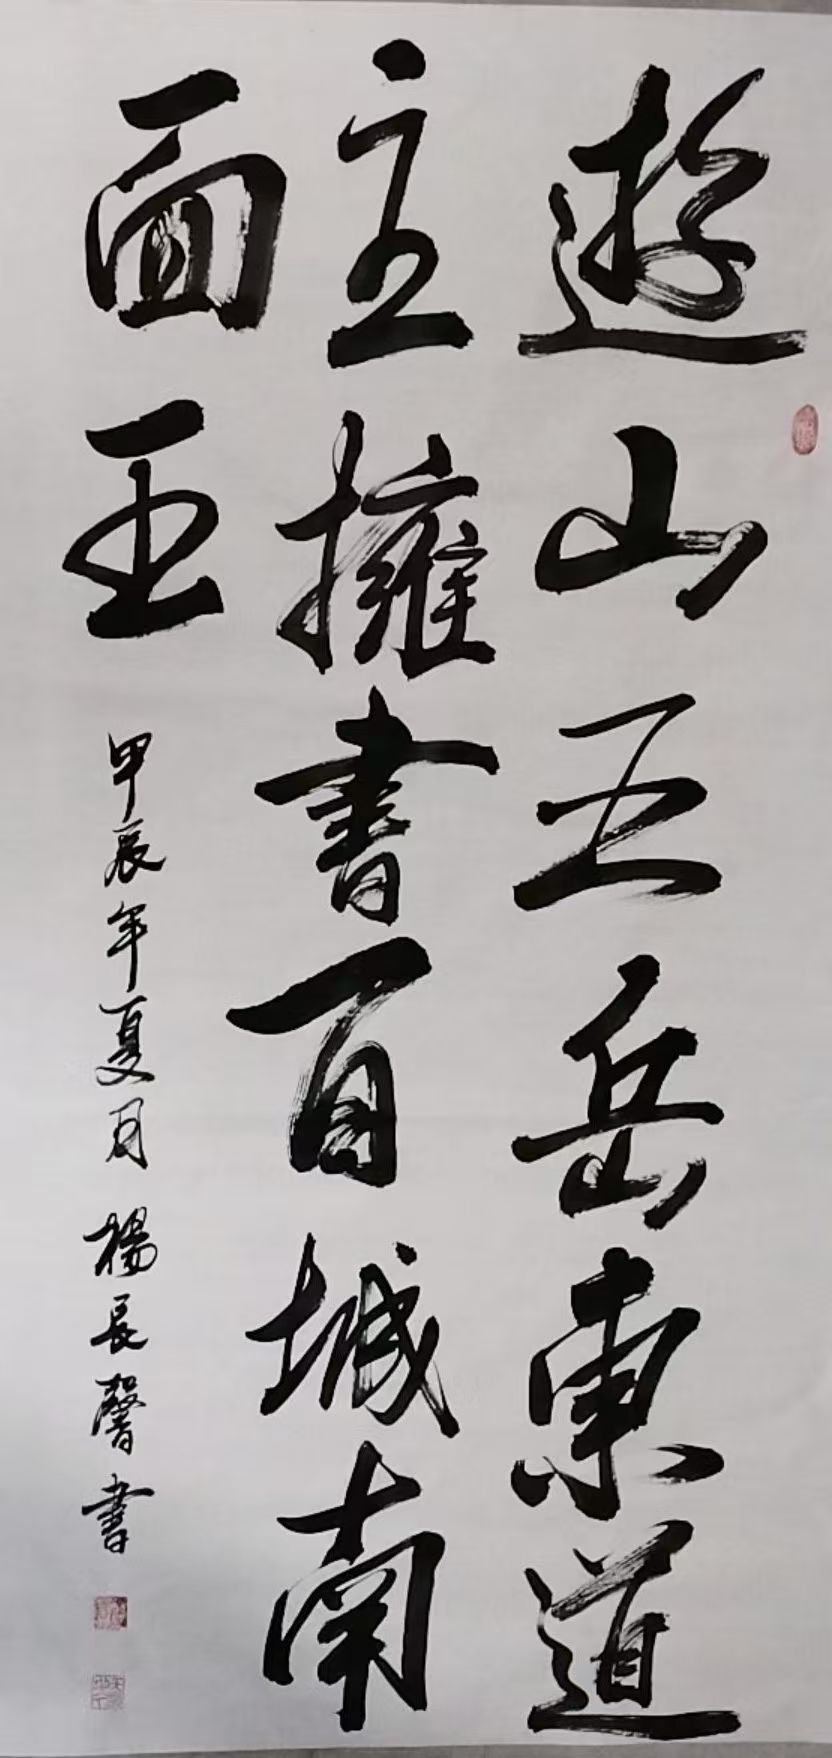 遊山五岳東道
主擁書百城南
面王
甲辰年夏月楊長馨書